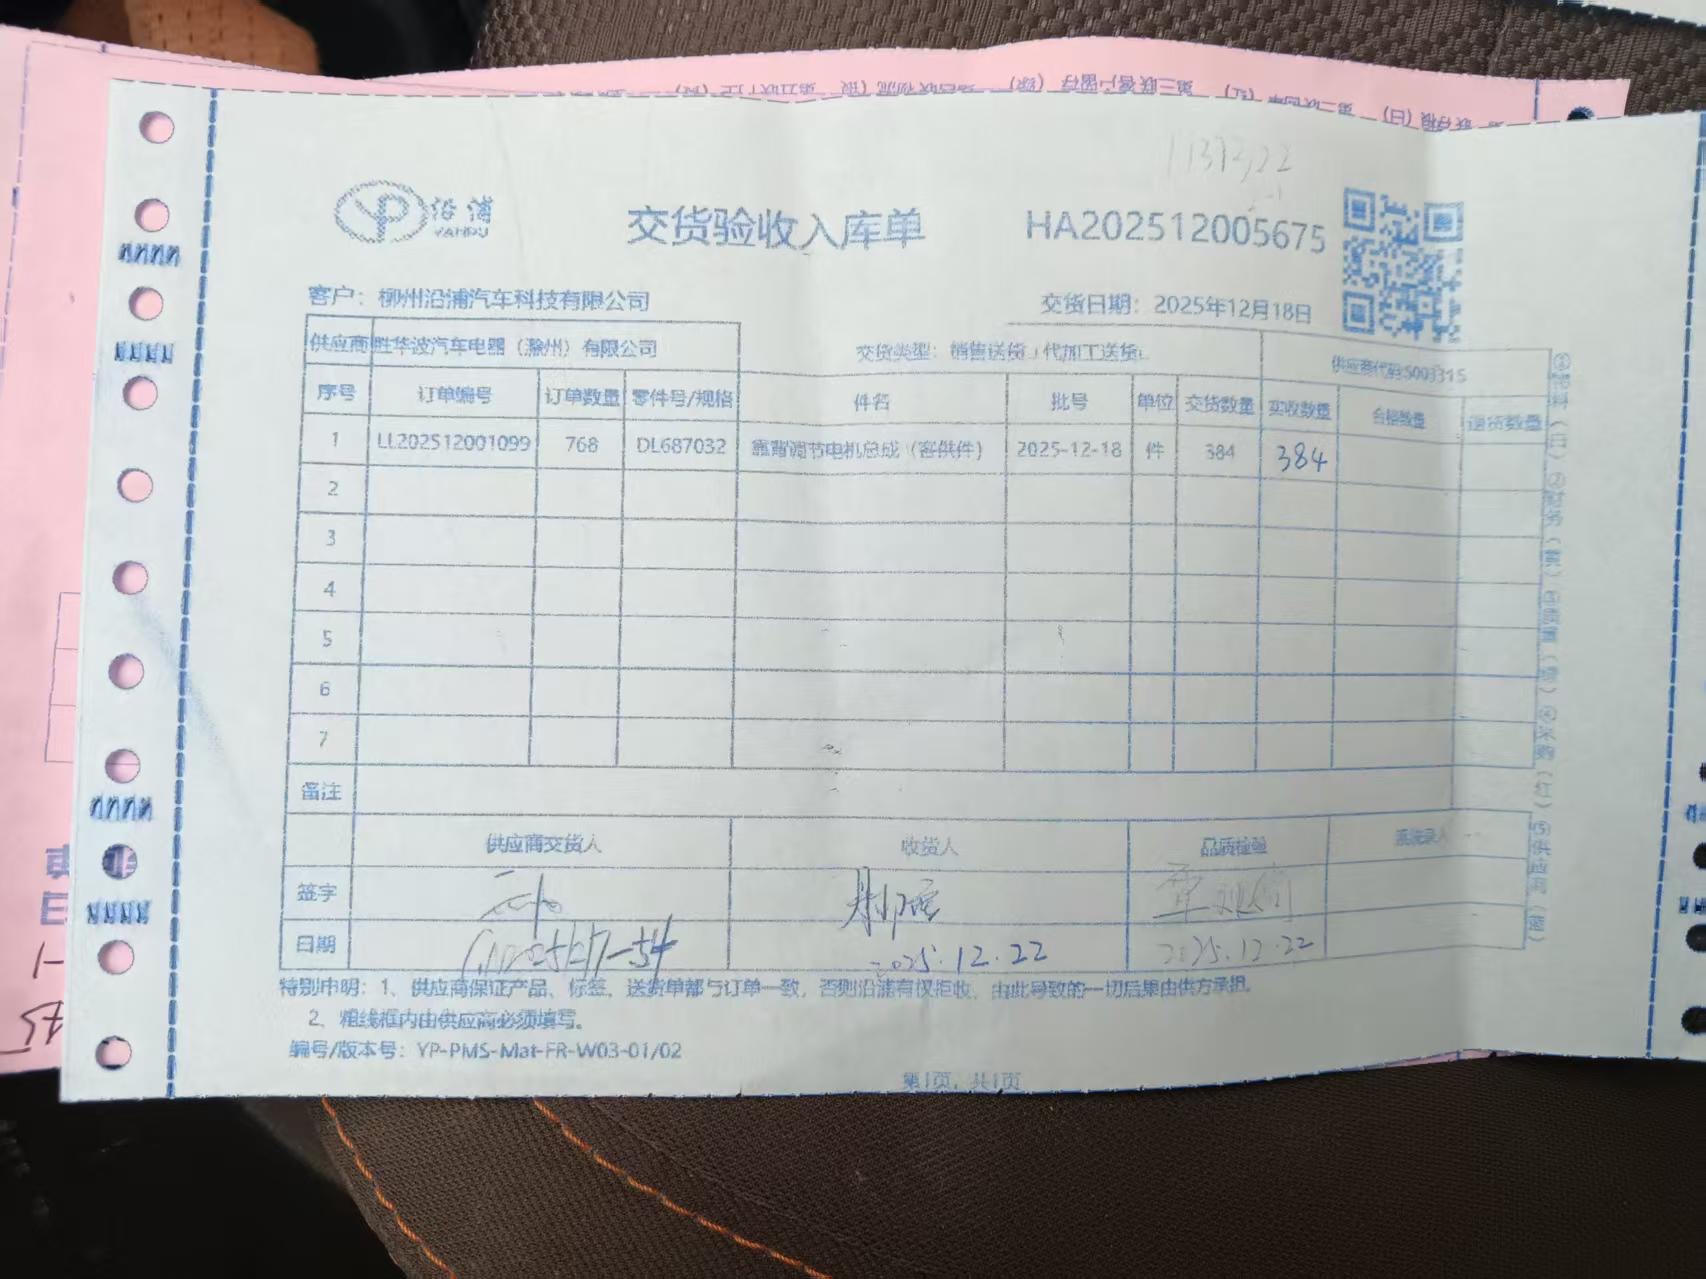 沿浦
YANPU
交货验收入库单
HA202512005675
客户：柳州沿浦汽车科技有限公司
交货日期：2025年12月18日
供应商 胜华波汽车电器（滁州）有限公司
交货类型：销售送货 代加工送货
供应商代码:S003315
序号 订单编号 订单数量 零件号/规格 件名 批号 单位 交货数量 实收数量 合格数量 退货数量
1 LL202512001099 768 DL687032 靠背调节电机总成（客供件） 2025-12-18 件 384 384
2
3
4
5
6
7
备注
供应商交货人 收货人 品质检验 系统录入
签字
日期 2025.12.22 2025.12.22
特别申明：1、供应商保证产品、标签、送货单都与订单一致，否则沿浦有权拒收，由此导致的一切后果由供方承担。
2、粗线框内由供应商必须填写。
编号/版本号：YP-PMS-Mat-FR-W03-01/02
第1页，共1页